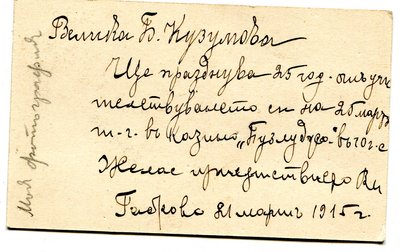 Велика Б. Кузумова
Ще празднува 25 год. отъ учи
телствуването си на 25 мартъ
т.г. въ казино „Бузлуджа"
Желае присѫтствието Ви
Габрово 21 мартъ 1915 г.
Моя фотография